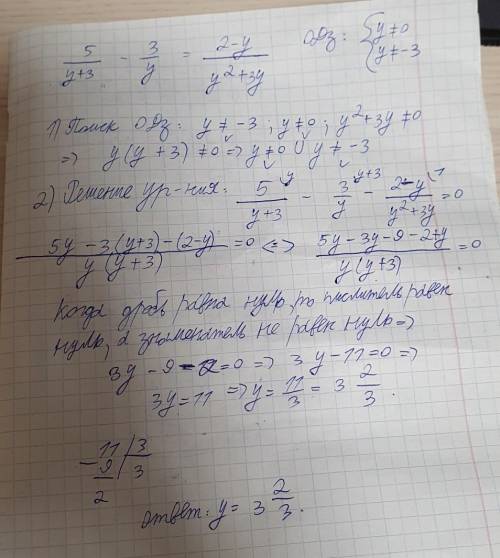 5/(y+3) - 3/y = (2-y)/(y²+3y) ОДЗ: { y≠0 { y≠-3
1) Поиск ОДЗ: y≠-3; y≠0; y²+3y≠0
=> y(y+3)≠0 => y≠0 U y≠-3
2) Решение ур-ния: 5/(y+3) - 3/y - (2-y)/(y²+3y) = 0
(5y-3(y+3)-(2-y))/(y(y+3)) = 0 <=> (5y-3y-9-2+y)/(y(y+3)) = 0
Когда дробь равна нулю, то числитель равен
нулю, а знаменатель не равен нулю =>
3y-9-2=0 => 3y-11=0 =>
3y=11 => y = 11/3 = 3 2/3.
-11 | 3
9 | 3
2
Ответ: y = 3 2/3.